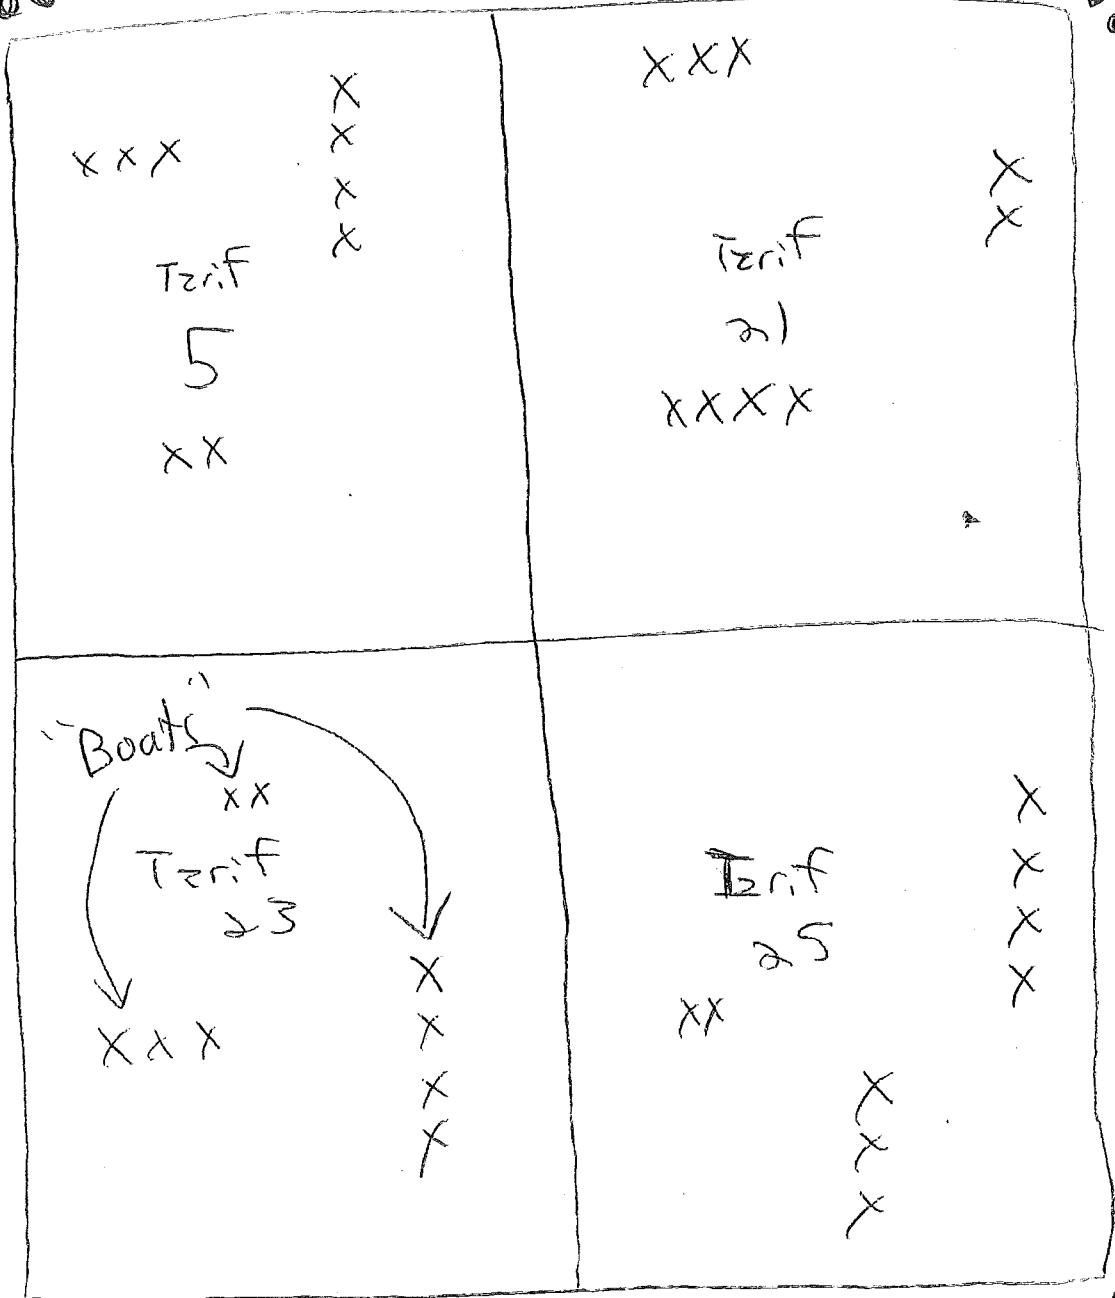 X
X X X
X
X
X
Tarif
5
X X
X X X
X
X
Tarif
21
X X X X
"Boats"
X X
Tarif
23
X X X
X
X
X
X
X
X
X
X
Tarif
25
X X
X
X
X